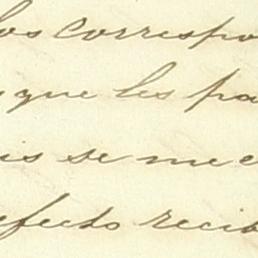 los correspo
que les pa
is se me c
efecto recib